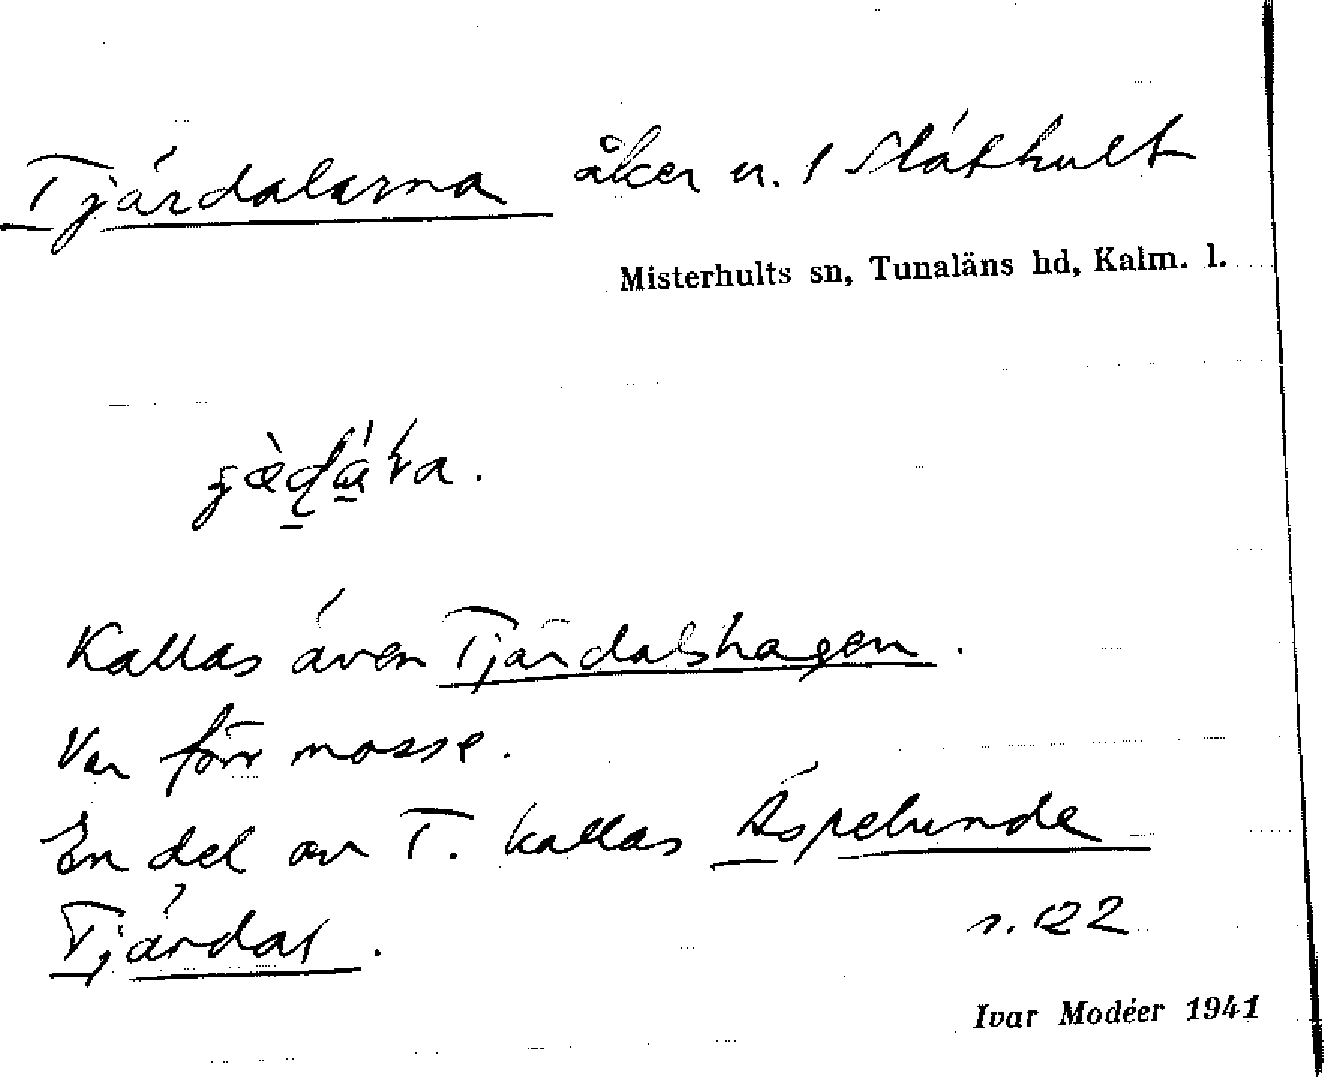 Tjärdalarna åker n. 1 Släthult
Misterhults sn, Tunaläns hd, Kalm. l.
Kallas även Tjärdalshagen.
Var förr mosse.
En del av T. kallas Äspelunde
Tjärdal.
s. 122
Ivar Modéer 1941